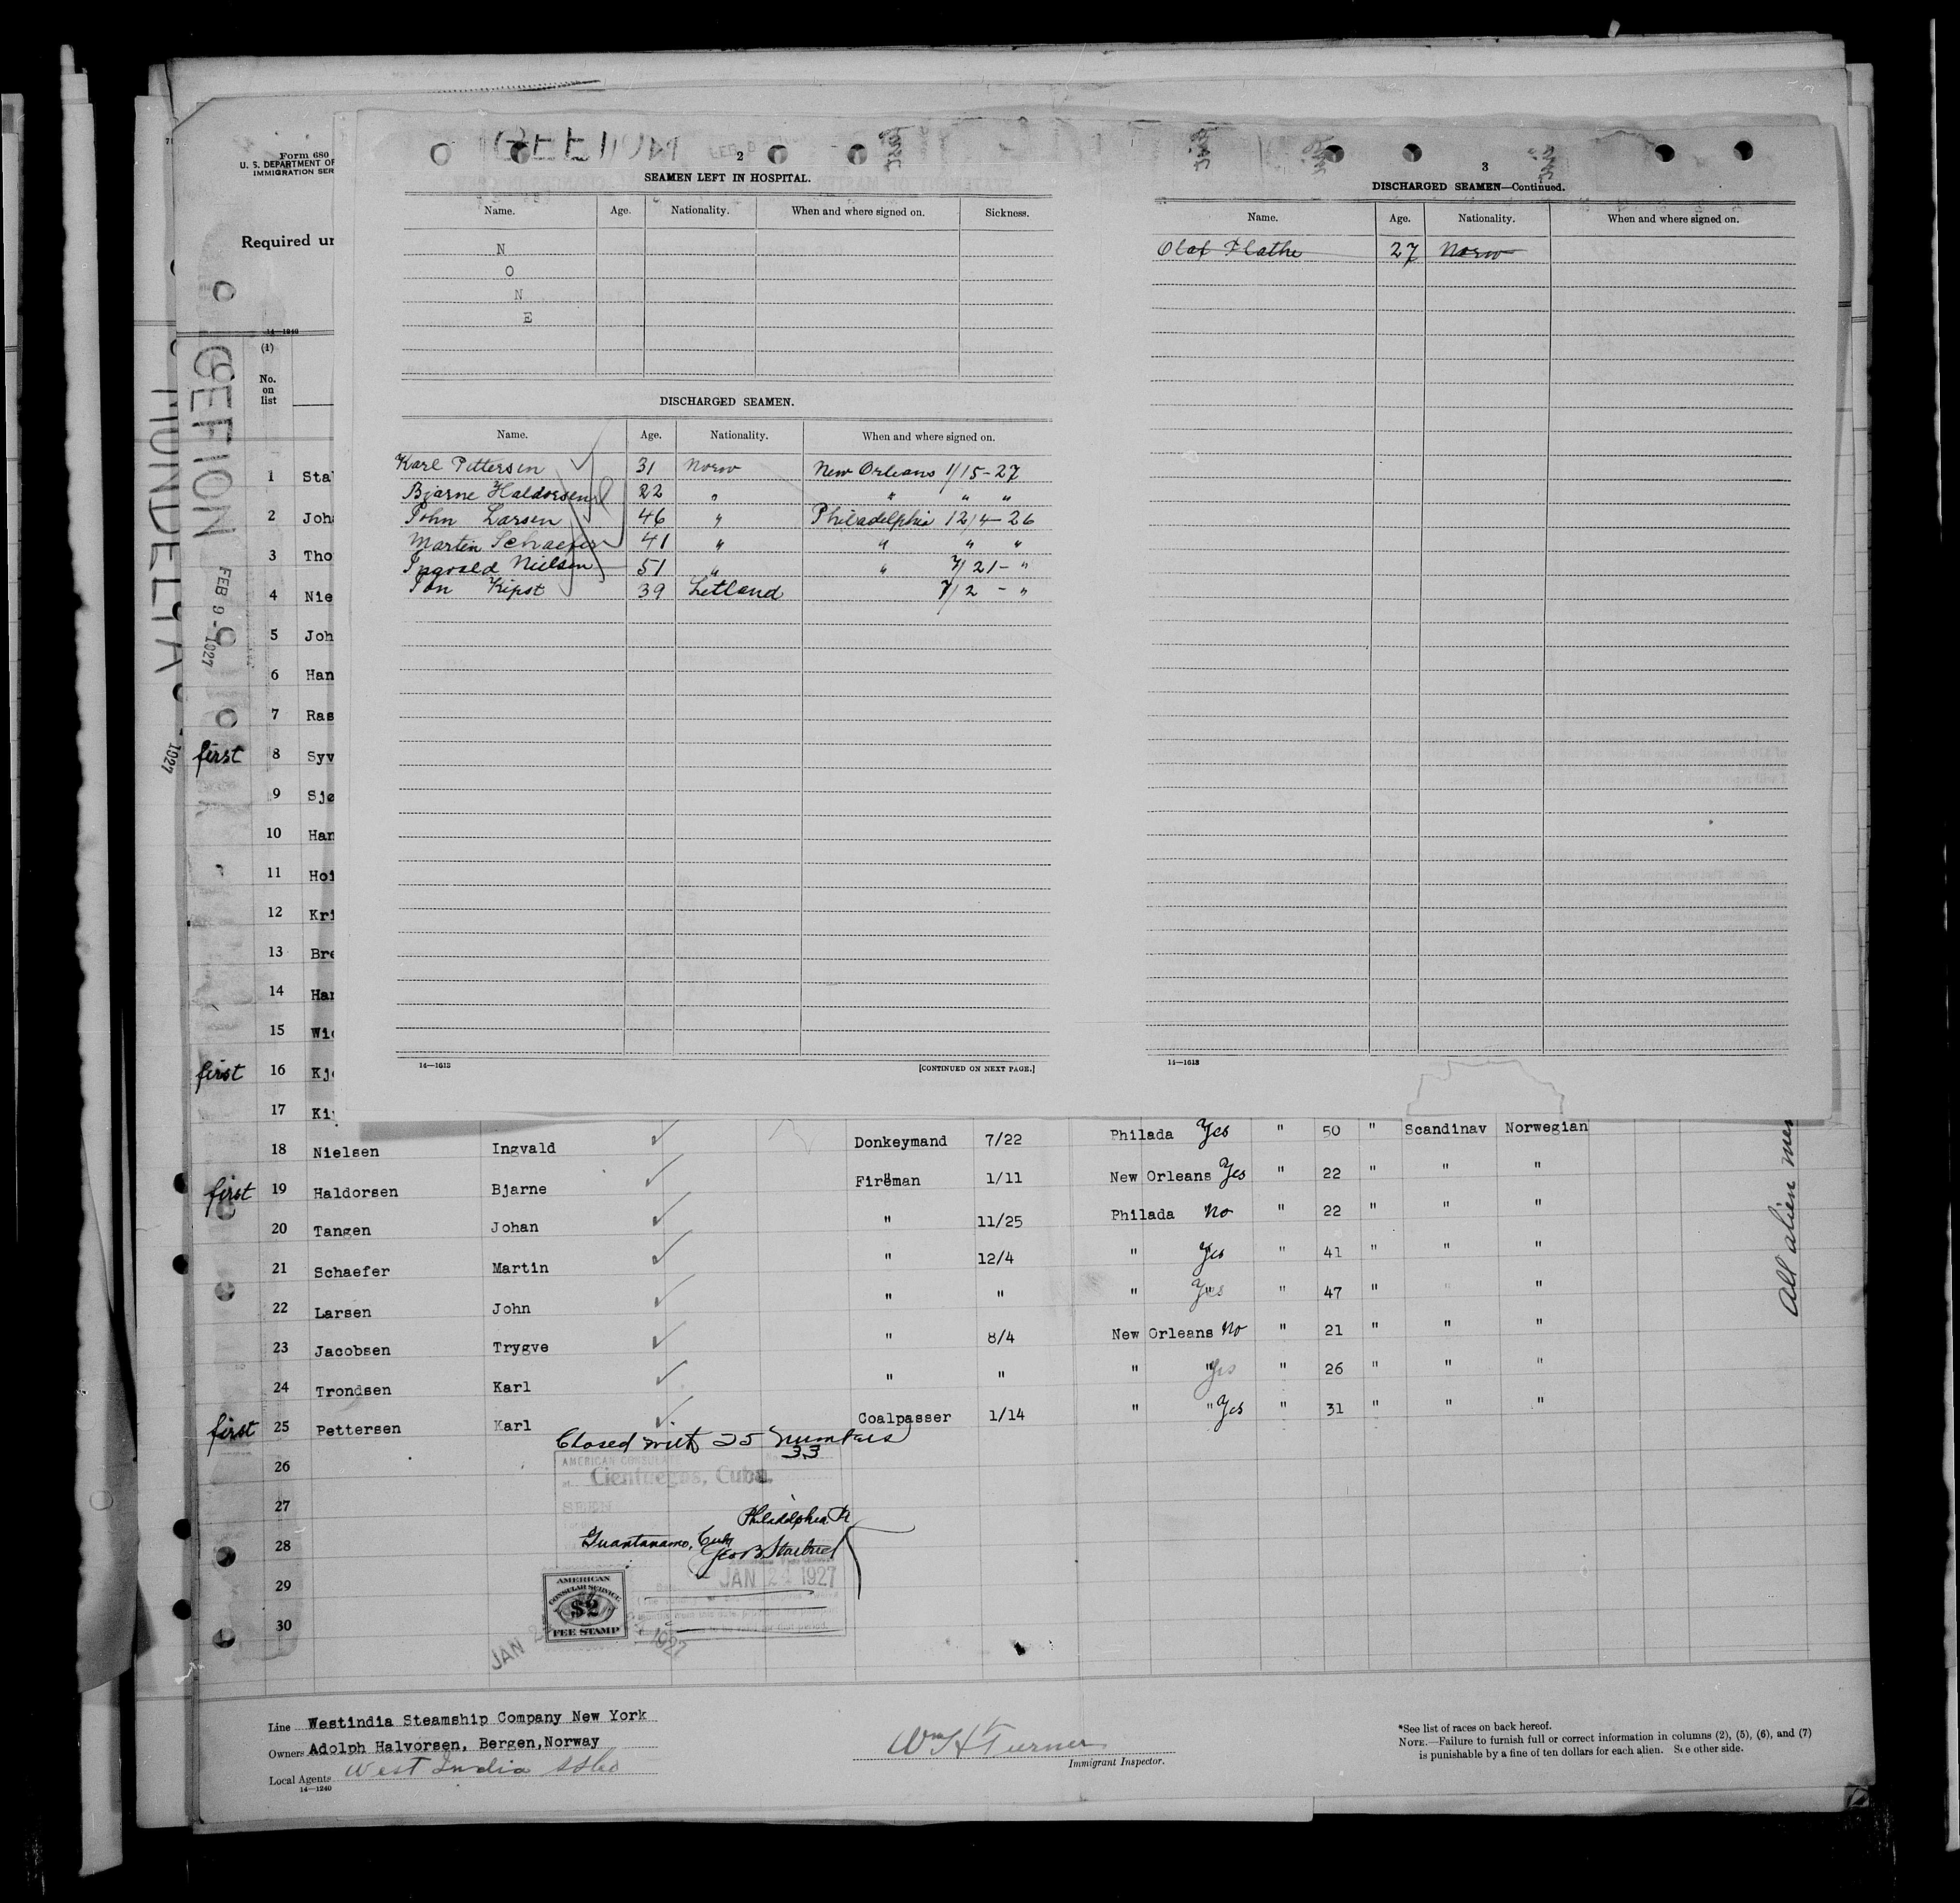 GEFION
2
SEAMEN LEFT IN HOSPITAL.
Name. Age. Nationality. When and where signed on. Sickness.
N
O
N
E
DISCHARGED SEAMEN.
Name. Age. Nationality. When and where signed on.
Karl Pettersen 31 Norw New Orleans 1/15-27
Bjarne Haldorsen 22 " " " "
John Larsen 46 " Philadelphia 12/4-26
Martin Schaefer 41 " " " "
Ingvald Nielsen 51 " " 7/21- "
Jan Kipst 39 Letland 7/2 - "
14—1613 [CONTINUED ON NEXT PAGE.]
3
DISCHARGED SEAMEN—Continued.
Name. Age. Nationality. When and where signed on.
Olaf Flathe 27 Norw
14—1613
Form 680
U. S. DEPARTMENT OF
IMMIGRATION SER
Required un
14—1240
(1)
No.
on
list
GEFION
FEB 9 - 1927
MUNDELTA
1927
1 Sta
2 Joh
3 Tho
4 Nie
5 Joh
6 Han
7 Ras
first 8 Syv
9 Sjø
10 Han
11 Hoi
12 Kri
13 Bre
14 Han
15 Wic
first 16 Kj
17 Ki
18 Nielsen Ingvald ✓ Donkeymand 7/22 Philada Yes " 50 " Scandinav Norwegian
first 19 Haldorsen Bjarne ✓ Fireman 1/11 New Orleans Yes " 22 " " "
20 Tangen Johan ✓ " 11/25 Philada No " 22 " " "
21 Schaefer Martin ✓ " 12/4 " Yes " 41 " " "
22 Larsen John ✓ " " " Yes " 47 " " "
23 Jacobsen Trygve ✓ " 8/4 New Orleans No " 21 " " "
24 Trondsen Karl ✓ " " " " Yes " 26 " " "
first 25 Pettersen Karl ✓ Coalpasser 1/14 " " Yes " 31 " " "
All alien
Closed with 25 numbers
33
26
27
28
29
30
AMERICAN CONSULATE
Cienfuegos, Cuba.
SEEN
Philadelphia Pa
Guantanamo, Cuba
JAN 24 1927
AMERICAN
CONSULAR SERVICE
$2
FEE STAMP
JAN 2
1927
Line Westindia Steamship Company New York
Owners Adolph Halvorsen, Bergen,Norway
Local Agents West India SSCo
14—1240
Wm H Turner
Immigrant Inspector.
*See list of races on back hereof.
NOTE.—Failure to furnish full or correct information in columns (2), (5), (6), and (7)
is punishable by a fine of ten dollars for each alien. See other side.